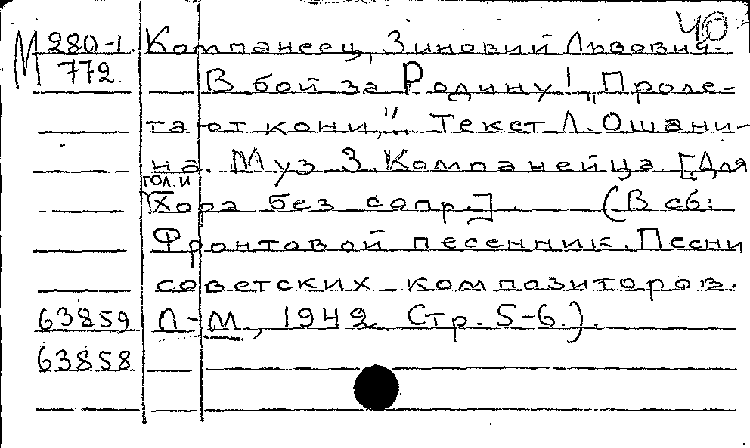 40
М 280-1. Компанеец, Зиновий Львович.
772 В бой за Родину! „Проле-
тают кони,".. Текст Л. Ошани-
на. Муз З. Компанейца [Для
гол. и
Хора без сопр.] . (В сб:
Фронтовой песенник. Песни
советских композиторов.
63859 Л-М, 1942 Стр. 5-6.).
63858